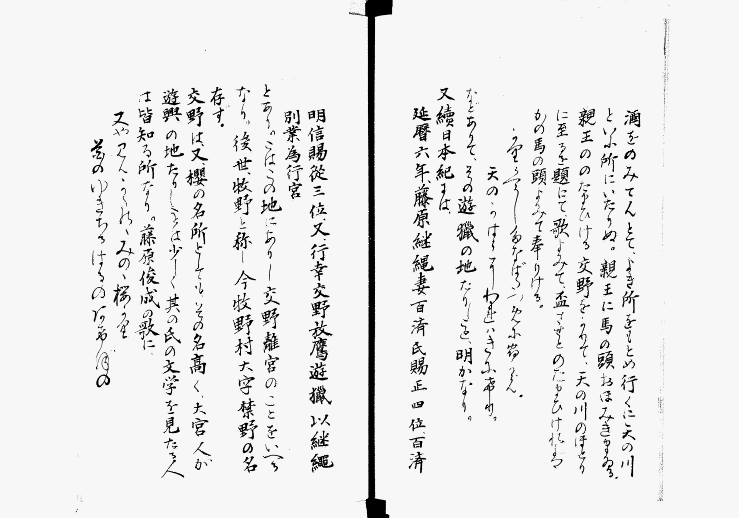 酒をのみてんとてよき所をもとめ行くに天の川
といふ所にいたりぬ。親王に馬の頭おほみきまゐる。
親王ののたまひける交野をかりて、天の川のほとり
に至るを題にて、歌よみて盃はさせとのたまひければ
かの馬の頭よみて奉りける。
かりくらしたなばたつめに宿からん。
天のかはらにわれは来にけり。
などありて、その遊獵の地たりしこと、明かなり。
又續日本紀には、
延暦六年、藤原継縄妻百済氏賜正四位、百済
明信賜從三位、又行幸交野放鷹遊獵以継縄
別業為行宮
とあり。こはこの地にありし交野離宮のことをいへる
なり。後世、牧野と称し今牧野村大字禁野の名
存す。
交野は又櫻の名所としても、その名高く、大宮人が
遊興の地たりしことは少しく其の氏の文学を見たる人
は皆知る所なり。藤原俊成の歌に
又やみんかたののみのの桜かり
花のゆきちるはるのあけぼの